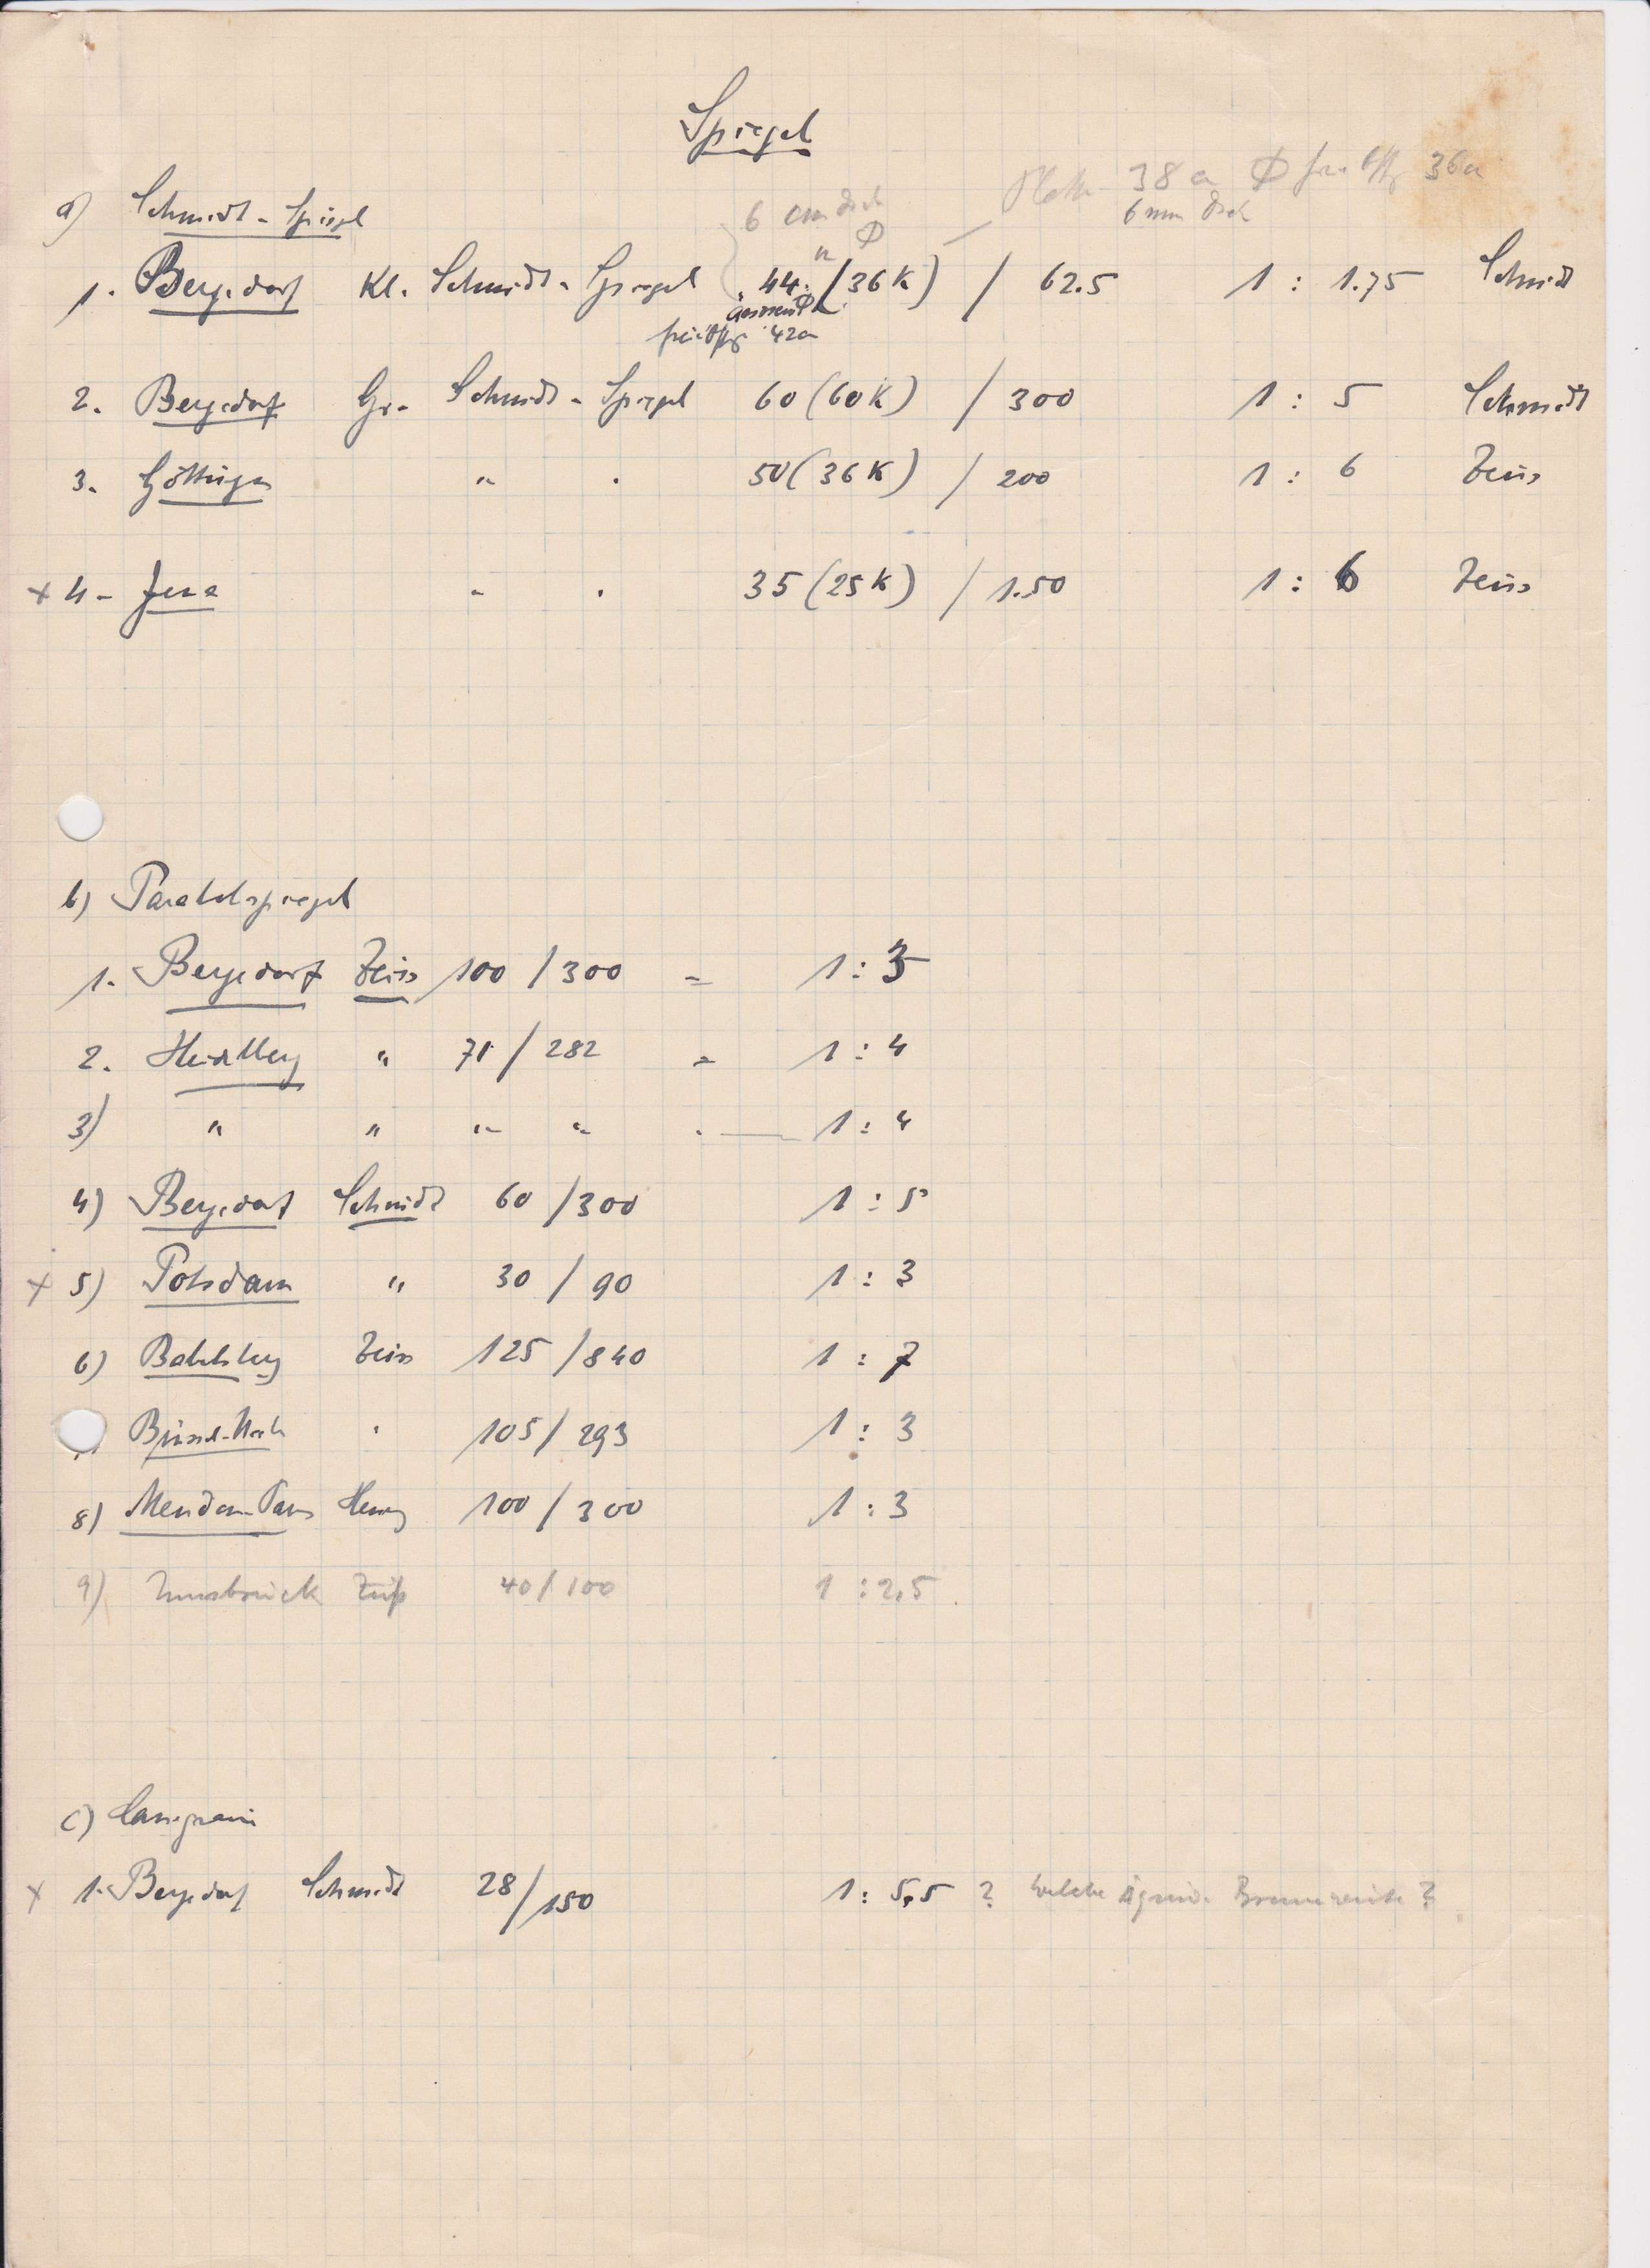 Spiegel
a) Schmidt-Spiegel
6 cm dick
Platte 38 cm Φ freie Öffg 36 cm
6 mm dick
1. Bergedorf Kl. Schmidt-Spiegel 44 (36 K) / 62.5 1 : 1.75 Schmidt
äussen Φ
freie Öffg 42 cm
2. Bergedorf Gr. Schmidt-Spiegel 60 (60 K) / 300 1 : 5 Schmidt
3. Göttingen " 50 (36 K) / 200 1 : 6 Zeiss
x 4. Jena " 35 (25 K) / 1.50 1 : 6 Zeiss
b) Parabelspiegel
1. Bergedorf Zeiss 100 / 300 = 1 : 3
2. Heidelberg " 71 / 282 = 1 : 4
3) " " " " 1 : 4
4) Bergedorf Schmidt 60 / 300 1 : 5
x 5) Potsdam " 30 / 90 1 : 3
6) Babelsberg Zeiss 125 / 840 1 : 7
105 / 293 1 : 3
8) Meudon-Paris Henry 100 / 300 1 : 3
9) Innsbruck Zeiß 40 / 100 1 : 2,5
c) Cassegrain
x 1. Bergedorf Schmidt 28 / 150 1 : 5,5 ? welche äquiv. Brennweite ?